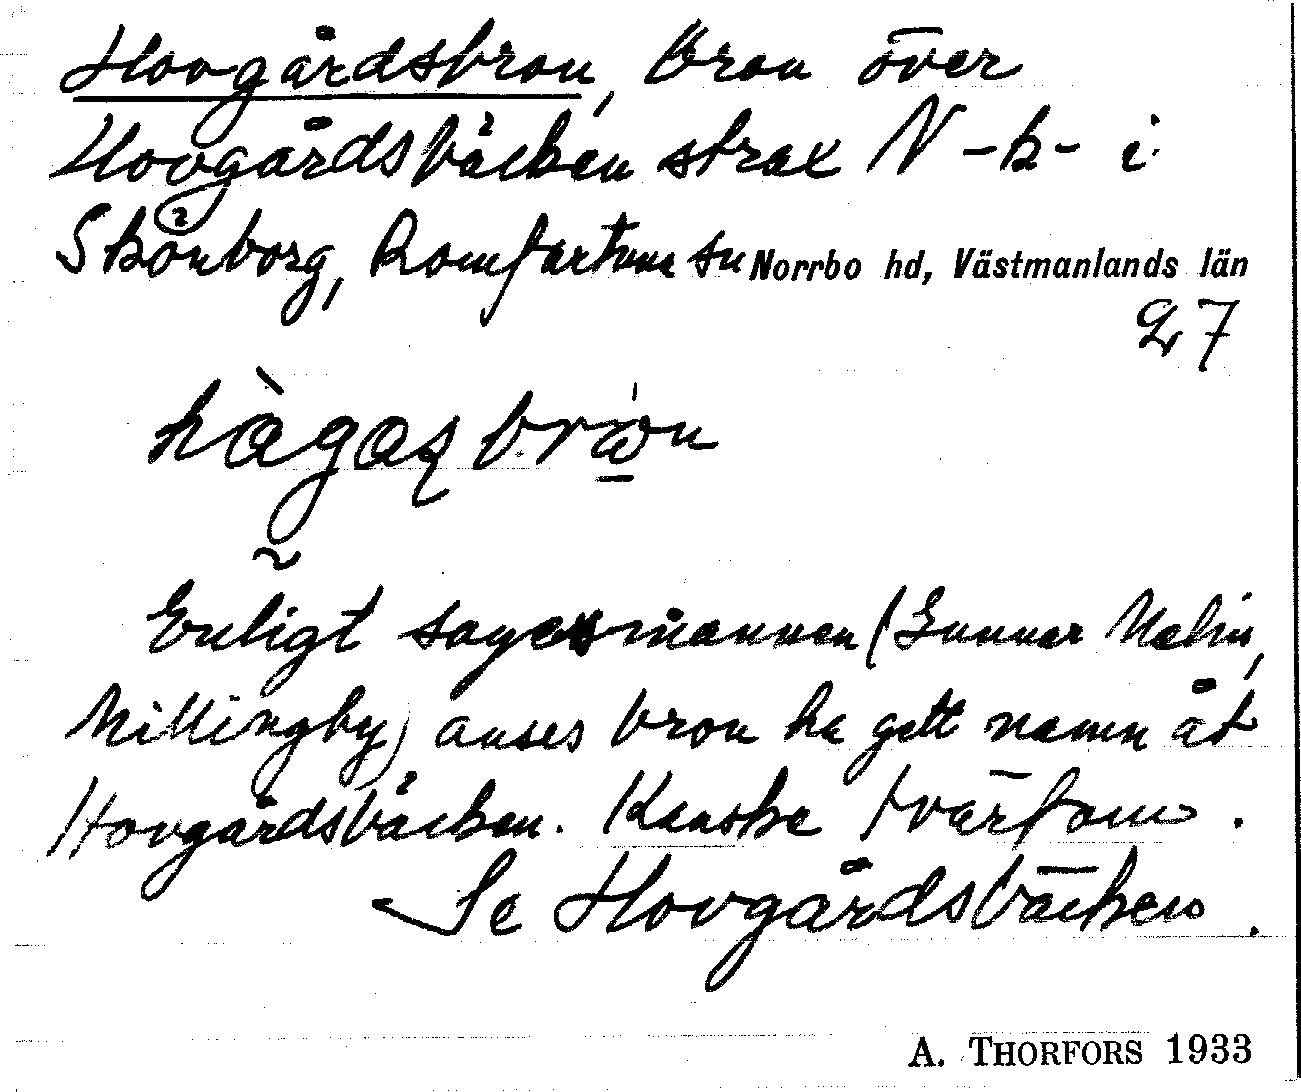 Hovgårdsbron, bron över
Hovgårdsbäcken strax N -k- i
Skönborg, Romfartuna sn Norrbo hd, Västmanlands län
27
Enligt sagesmannen (Gunnar Malin,
Millingby) anses bron ha gett namn åt
Hovgårdsbäcken. Kanske tvärtom.
Se Hovgårdsbäcken.
A. THORFORS 1933